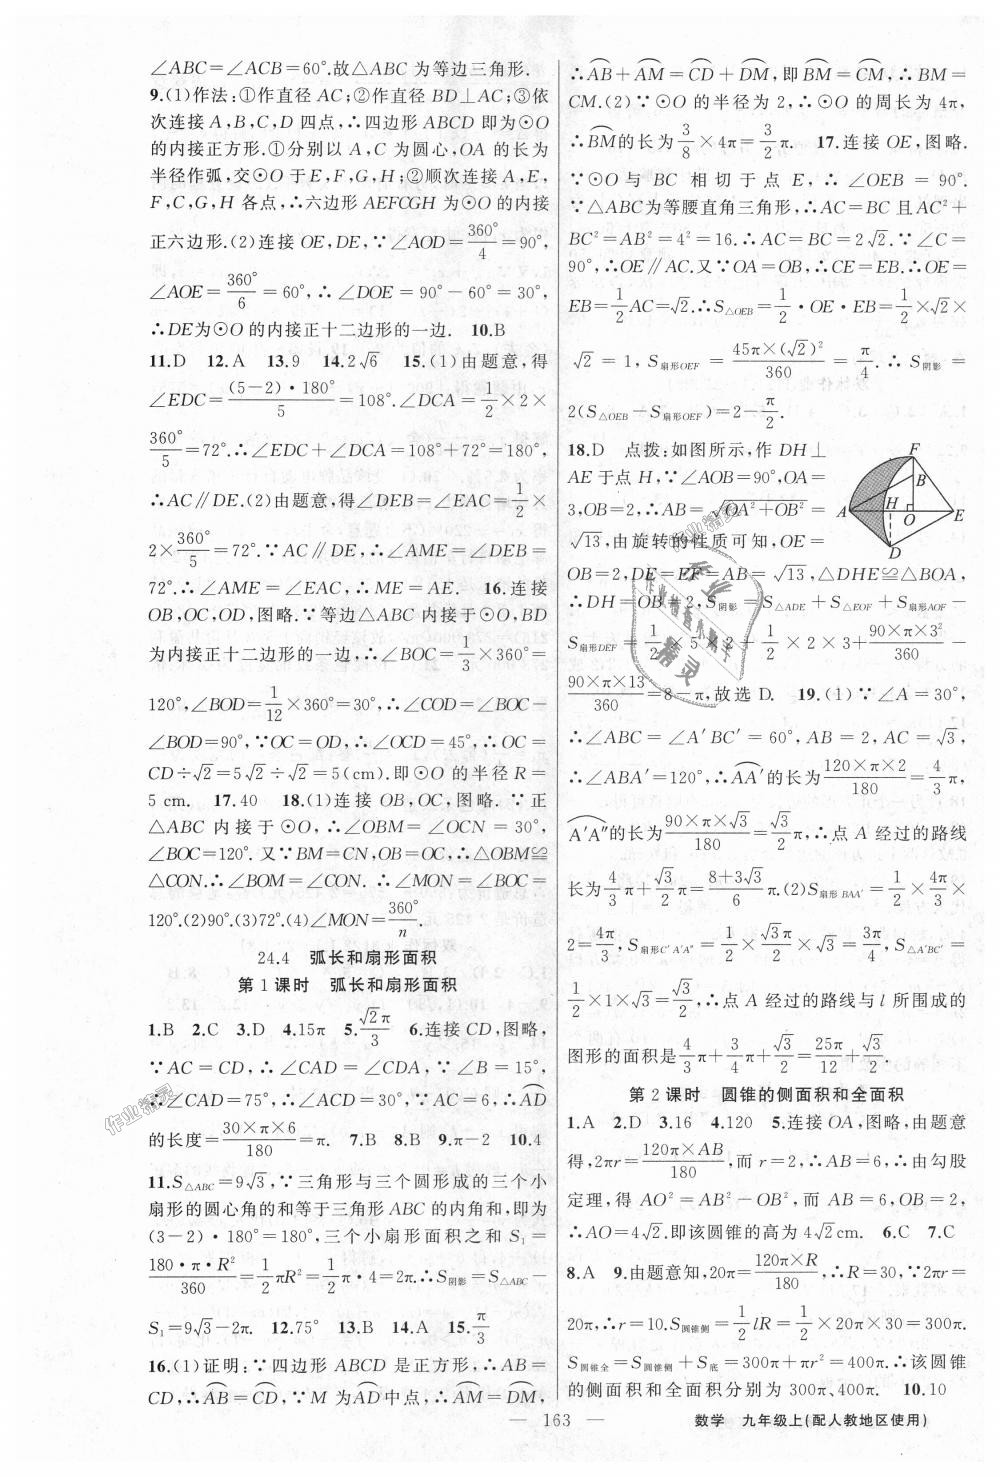 ∠ABC=∠ACB=60°.故△ABC 为等边三角形.
9.(1)作法:①作直径 AC;②作直径 BD⊥AC;③依
次连接 A,B,C,D 四点,∴四边形 ABCD 即为⊙O
的内接正方形.①分别以 A,C 为圆心,OA 的长为
半径作弧,交⊙O 于 E,F,G,H;②顺次连接 A,E,
F,C,G,H 各点,∴六边形 AEFCGH 为⊙O 的内接
正六边形.(2)连接 OE,DE,∵∠AOD=360°/4=90°,
∠AOE=360°/6=60°,∴∠DOE=90°-60°=30°,
∴DE为⊙O的内接正十二边形的一边. 10.B
11.D 12.A 13.9 14.2√6 15.(1)由题意,得
∠EDC=(5-2)·180°/5=108°.∠DCA=1/2×2×
360°/5=72°.∴∠EDC+∠DCA=108°+72°=180°,
∴AC∥DE.(2)由题意,得∠DEB=∠EAC=1/2×
2×360°/5=72°.∵AC∥DE,∴∠AME=∠DEB=
72°.∴∠AME=∠EAC,∴ME=AE. 16.连接
OB,OC,OD,图略.∵等边△ABC 内接于⊙O,BD
为内接正十二边形的一边,∴∠BOC=1/3×360°=
120°,∠BOD=1/12×360°=30°,∴∠COD=∠BOC-
∠BOD=90°,∵OC=OD,∴∠OCD=45°,∴OC=
CD÷√2=5√2÷√2=5(cm).即⊙O 的半径 R=
5 cm. 17.40 18.(1)连接 OB,OC,图略.∵正
△ABC 内接于⊙O,∴∠OBM=∠OCN=30°,
∠BOC=120°.又∵BM=CN,OB=OC,∴△OBM≌
△CON.∴∠BOM=∠CON. ∴∠MON=∠BOC=
120°.(2)90°.(3)72°.(4)∠MON=360°/n.
24.4 弧长和扇形面积
第 1 课时 弧长和扇形面积
1.B 2.C 3.D 4.15π 5.√2π/3 6.连接 CD,图略,
∵AC=CD,∴∠CAD=∠CDA,∵∠B=15°,
∴∠CAD=75°,∴∠ACD=30°,∵AC=6,∴⌒AD
的长度=30×π×6/180=π. 7.B 8.B 9.π-2 10.4
11.S△ABC=9√3,∵三角形与三个圆形成的三个小
扇形的圆心角的和等于三角形 ABC 的内角和,即为
(3-2)·180°=180°,三个小扇形面积之和 S₁=
180·π·R²/360=1/2πR²=1/2π·4=2π.∴S阴影=S△ABC-
S₁=9√3-2π. 12.75° 13.B 14.A 15.π/3
16.(1)证明:∵四边形 ABCD 是正方形,∴AB=
CD,∴⌒AB=⌒CD,∵M 为⌒AD中点,∴⌒AM=⌒DM,
∴⌒AB+⌒AM=⌒CD+⌒DM,即⌒BM=⌒CM,∴BM=
CM.(2)∵⊙O 的半径为 2,∴⊙O 的周长为 4π,
∴⌒BM的长为3/8×4π=3/2π. 17.连接 OE,图略.
∵⊙O 与 BC 相切于点 E,∴∠OEB=90°.
∵△ABC为等腰直角三角形,∴AC=BC 且 AC²+
BC²=AB²=4²=16.∴AC=BC=2√2.∵∠C=
90°,∴OE∥AC.又∵OA=OB,∴CE=EB.∴OE=
EB=1/2AC=√2.∴S△OEB=1/2·OE·EB=1/2×√2×
√2=1,S扇形OEF=45π×(√2)²/360=π/4.∴S阴影=
2(S△OEB-S扇形OEF)=2-π/2.
18.D 点拨:如图所示,作 DH⊥
AE于点 H,∵∠AOB=90°,OA=
3,OB=2,∴AB=√(OA²+OB²)=
√13,由旋转的性质可知,OE=
OB=2,DE=EF=AB=√13,△DHE≌△BOA,
∴DH=OB=2,S阴影=S△ADE+S△EOF+S扇形AOF-
S扇形DEF=1/2×5×2+1/2×2×3+90×π×3²/360-
90×π×13/360=8-π,故选 D. 19.(1)∵∠A=30°,
∴∠ABC=∠A′BC′=60°,AB=2,AC=√3,
∴∠ABA′=120°,∴⌒AA′的长为120×π×2/180=4/3π,
⌒A′A″的长为90×π×√3/180=√3/2π,∴点 A 经过的路线
长为4/3π+√3/2π=(8+3√3)/6π.(2)S扇形BAA′=1/2×4π/3×
2=4π/3,S扇形C′A′A″=1/2×√3π/2×√3=3π/4,S△A′BC′=
1/2×1×√3=√3/2,∴点 A 经过的路线与 l 所围成的
图形的面积是4/3π+3/4π+√3/2=25π/12+√3/2.
第 2 课时 圆锥的侧面积和全面积
1.A 2.D 3.16 4.120 5.连接 OA,图略,由题意
得,2πr=120π×AB/180,而 r=2,∴AB=6,∴由勾股
定理,得 AO²=AB²-OB²,而 AB=6,OB=2,
∴AO=4√2.即该圆锥的高为 4√2cm. 6.C 7.C
8.A 9.由题意知,20π=120π×R/180,∴R=30,∵2πr=
20π,∴r=10.S圆锥侧=1/2lR=1/2×20π×30=300π.
S圆锥全=S圆锥侧+S底=300π+πr²=400π.∴该圆锥
的侧面积和全面积分别为 300π、400π. 10.10
F
B
A
H
O
E
D
作业精灵
— 163 — 数学 九年级上(配人教地区使用)